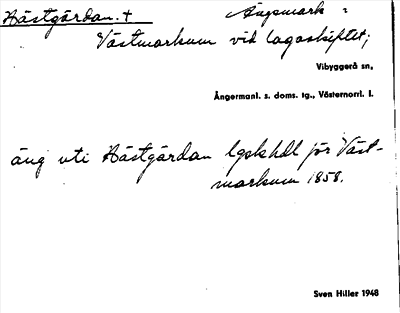 Hästgårdan. + Ängsmark i
Västmarkum vid lagaskiftet;
Vibyggerå sn,
Ångermanl. s. doms. tg., Västernorrl. l.
äng uti Hästgårdan lgskhdl för Väst-
markum 1858.
Sven Hiller 1948